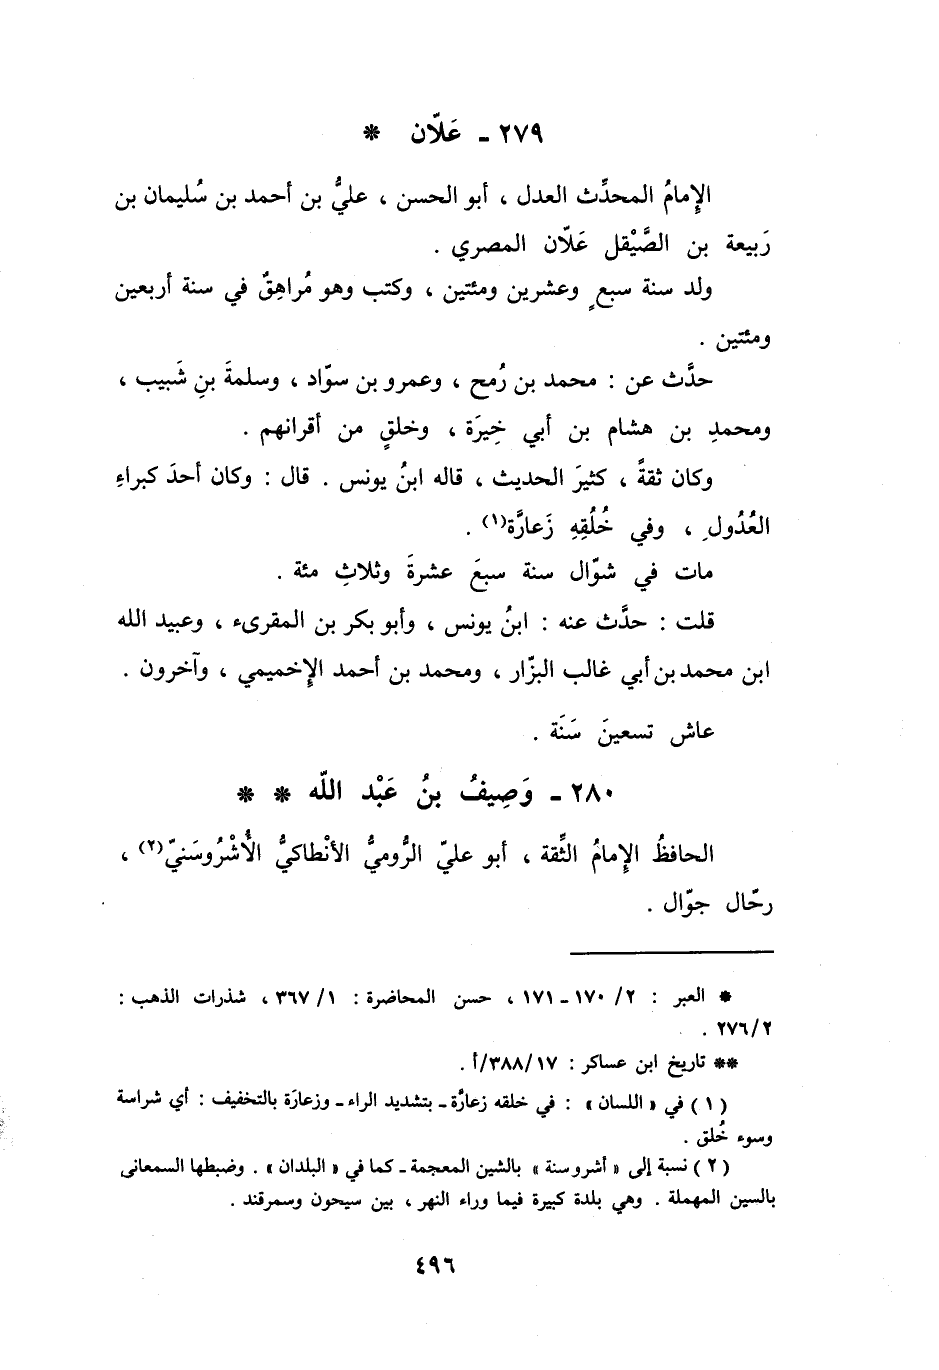 ٢٧٩ ـ عَلّان *
الإِمامُ المحدِّث العدل ، أبو الحسن ، عليُّ بن أحمد بن سُليمان بن
رَبيعة بن الصَّيْقل عَلّان المصري .
ولد سنة سبعٍ وعشرين ومئتين ، وكتب وهو مُراهِقٌ في سنة أربعين
ومئتين .
حدَّث عن : محمد بن رُمح ، وعمرو بن سوّاد ، وسلمةَ بنِ شَبيب ،
ومحمدِ بن هشام بن أبي خِيرَة ، وخلقٍ من أقرانهم .
وكان ثقةً ، كثيرَ الحديث ، قاله ابنُ يونس . قال : وكان أحدَ كبراءِ
العُدُولِ ، وفي خُلُقِهِ زَعارَّة(١) .
مات في شوّال سنة سبعَ عشرةَ وثلاثِ مئة .
قلت : حدَّث عنه : ابنُ يونس ، وأبو بكر بن المقرىء ، وعبيد الله
ابن محمد بن أبي غالب البزّار ، ومحمد بن أحمد الإِخميمي ، وآخرون .
عاش تسعينَ سَنَة .
٢٨٠ ـ وَصِيفُ بنُ عَبْد اللّه * *
الحافظُ الإِمامُ الثِّقة ، أبو عليّ الرُّوميُّ الأنْطاكيُّ الأُشْرُوسَنيّ(٢) ،
رحّال جوّال .
* العبر : ٢/ ١٧٠ ـ ١٧١ ، حسن المحاضرة : ١/ ٣٦٧ ، شذرات الذهب :
٢٧٦/٢ .
** تاريخ ابن عساكر : ١٧/ ٣٨٨/أ .
(١) في « اللسان » : في خلقه زعارَّة ـ بتشديد الراء ـ وزعارَة بالتخفيف : أي شراسة
وسوء خُلق .
(٢) نسبة إلى « أشروسنة » بالشين المعجمة ـ كما في « البلدان » . وضبطها السمعانى
بالسين المهملة . وهي بلدة كبيرة فيما وراء النهر ، بين سيحون وسمرقند .
٤٩٦